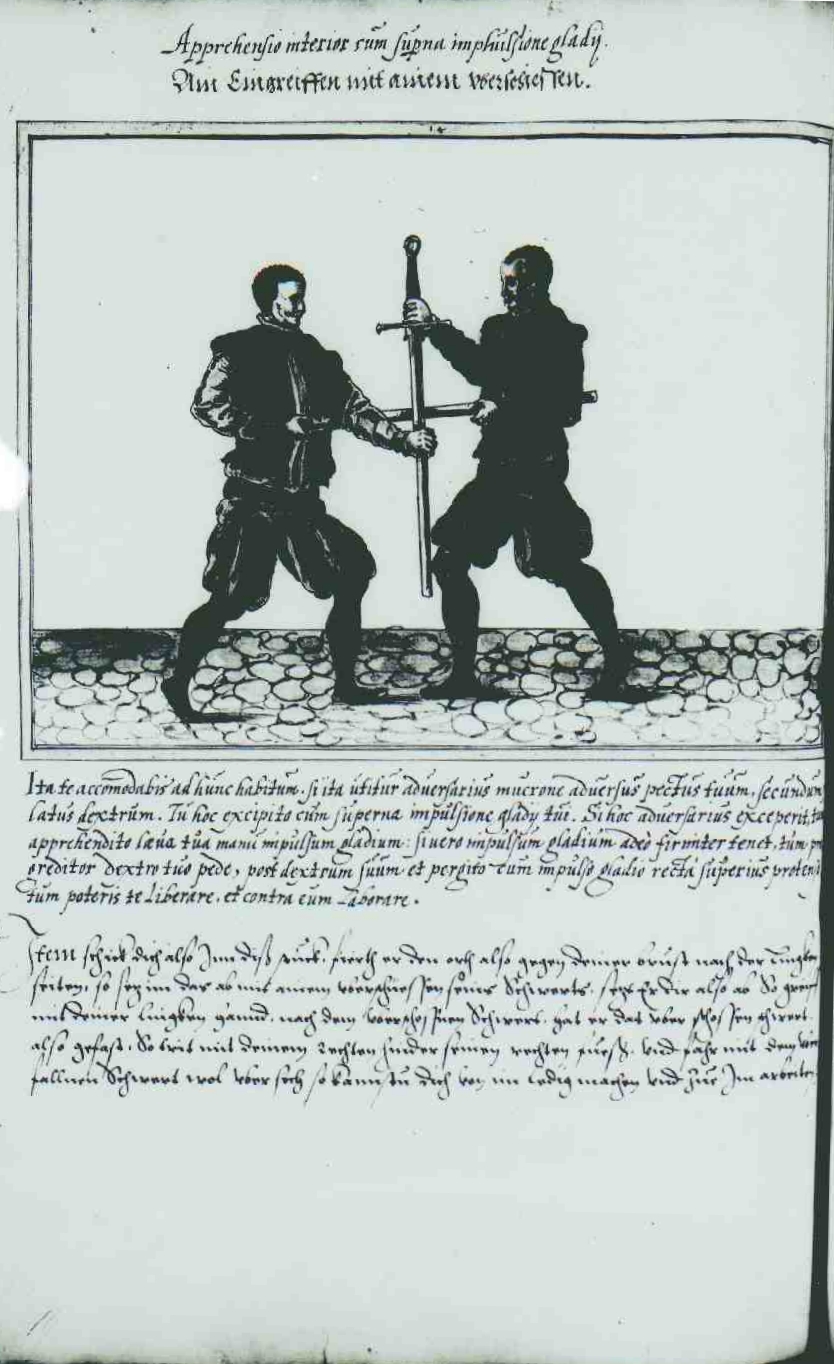 Apprehensio interior cum supna impulsione gladij.
Ain Eingreiffen mit ainem vberschiessen.
14
Ita te accomodabis ad hunc habitum. si ita utitur adversarius mucrone adversus pectus tuum, secundum
latus dextrum. Tu hoc excipito cum superna impulsione gladij tui. Si hoc adversarius exceperit, tu
apprehendito læva tua manu impulsum gladium: si vero impulsum gladium adeo firmiter tenet, tum
greditor dextro tuo pede, post dextrum suum et pergito cum impulso gladio recta superius
tum poteris te liberare, et contra eum Laborare.
Item schick dich also Inn diß stuck. fierth er den orth also gegen deiner brust nach der Lingken
seiten, so setz im das ab mit ainem vberschiessen seines Schwerts. setzt Er dir also ab So greif
mit deiner lingken hannd nach dem vberschossnen Schwert. hat er das vber schossen schwert
also gefast. So trit mit deinem rechten hinder seinen rechten fuess. vnd fahr mit dem
fallnen Schwert wol vber sich so kanstu dich von im ledig machen vnd zue Im